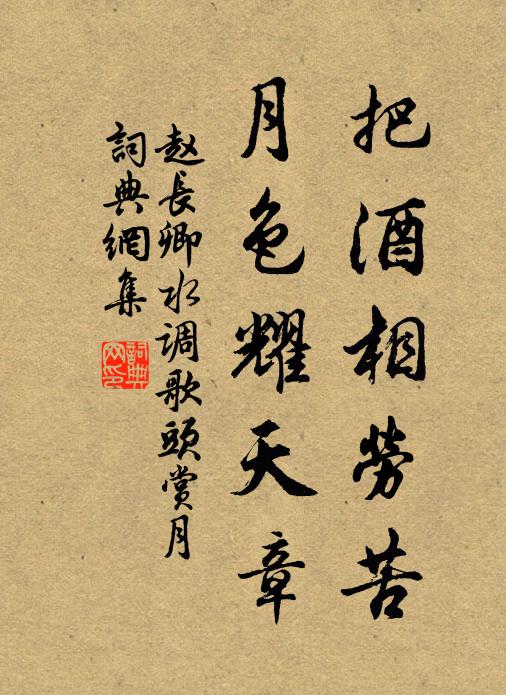 把酒相勞苦
月色耀天章
赵長卿水调歌頭赏月
詞典網集
詞典網印